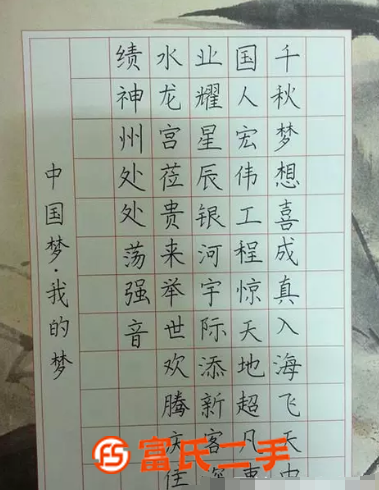 千秋梦想喜成真入海飞天中
国人宏伟工程惊天地超凡事
业耀星辰银河宇际添新客
水龙宫莅贵来举世欢腾庆佳
绩神州处处荡强音
中国梦·我的梦
富氏二手